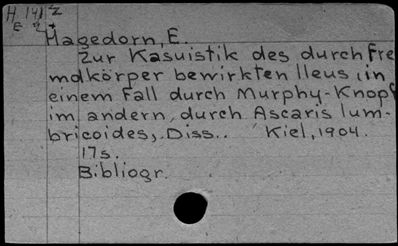 H 141 Z
E
Hagedorn, E.
Zur Kasuistik des durch Fre
mdkörper bewirkten Ileus, in
einem Fall durch Murphy-Knopf
im andern, durch Ascaris lum-
bricoides,. Diss.. Kiel, 1904.
17s.
Bibliogr.